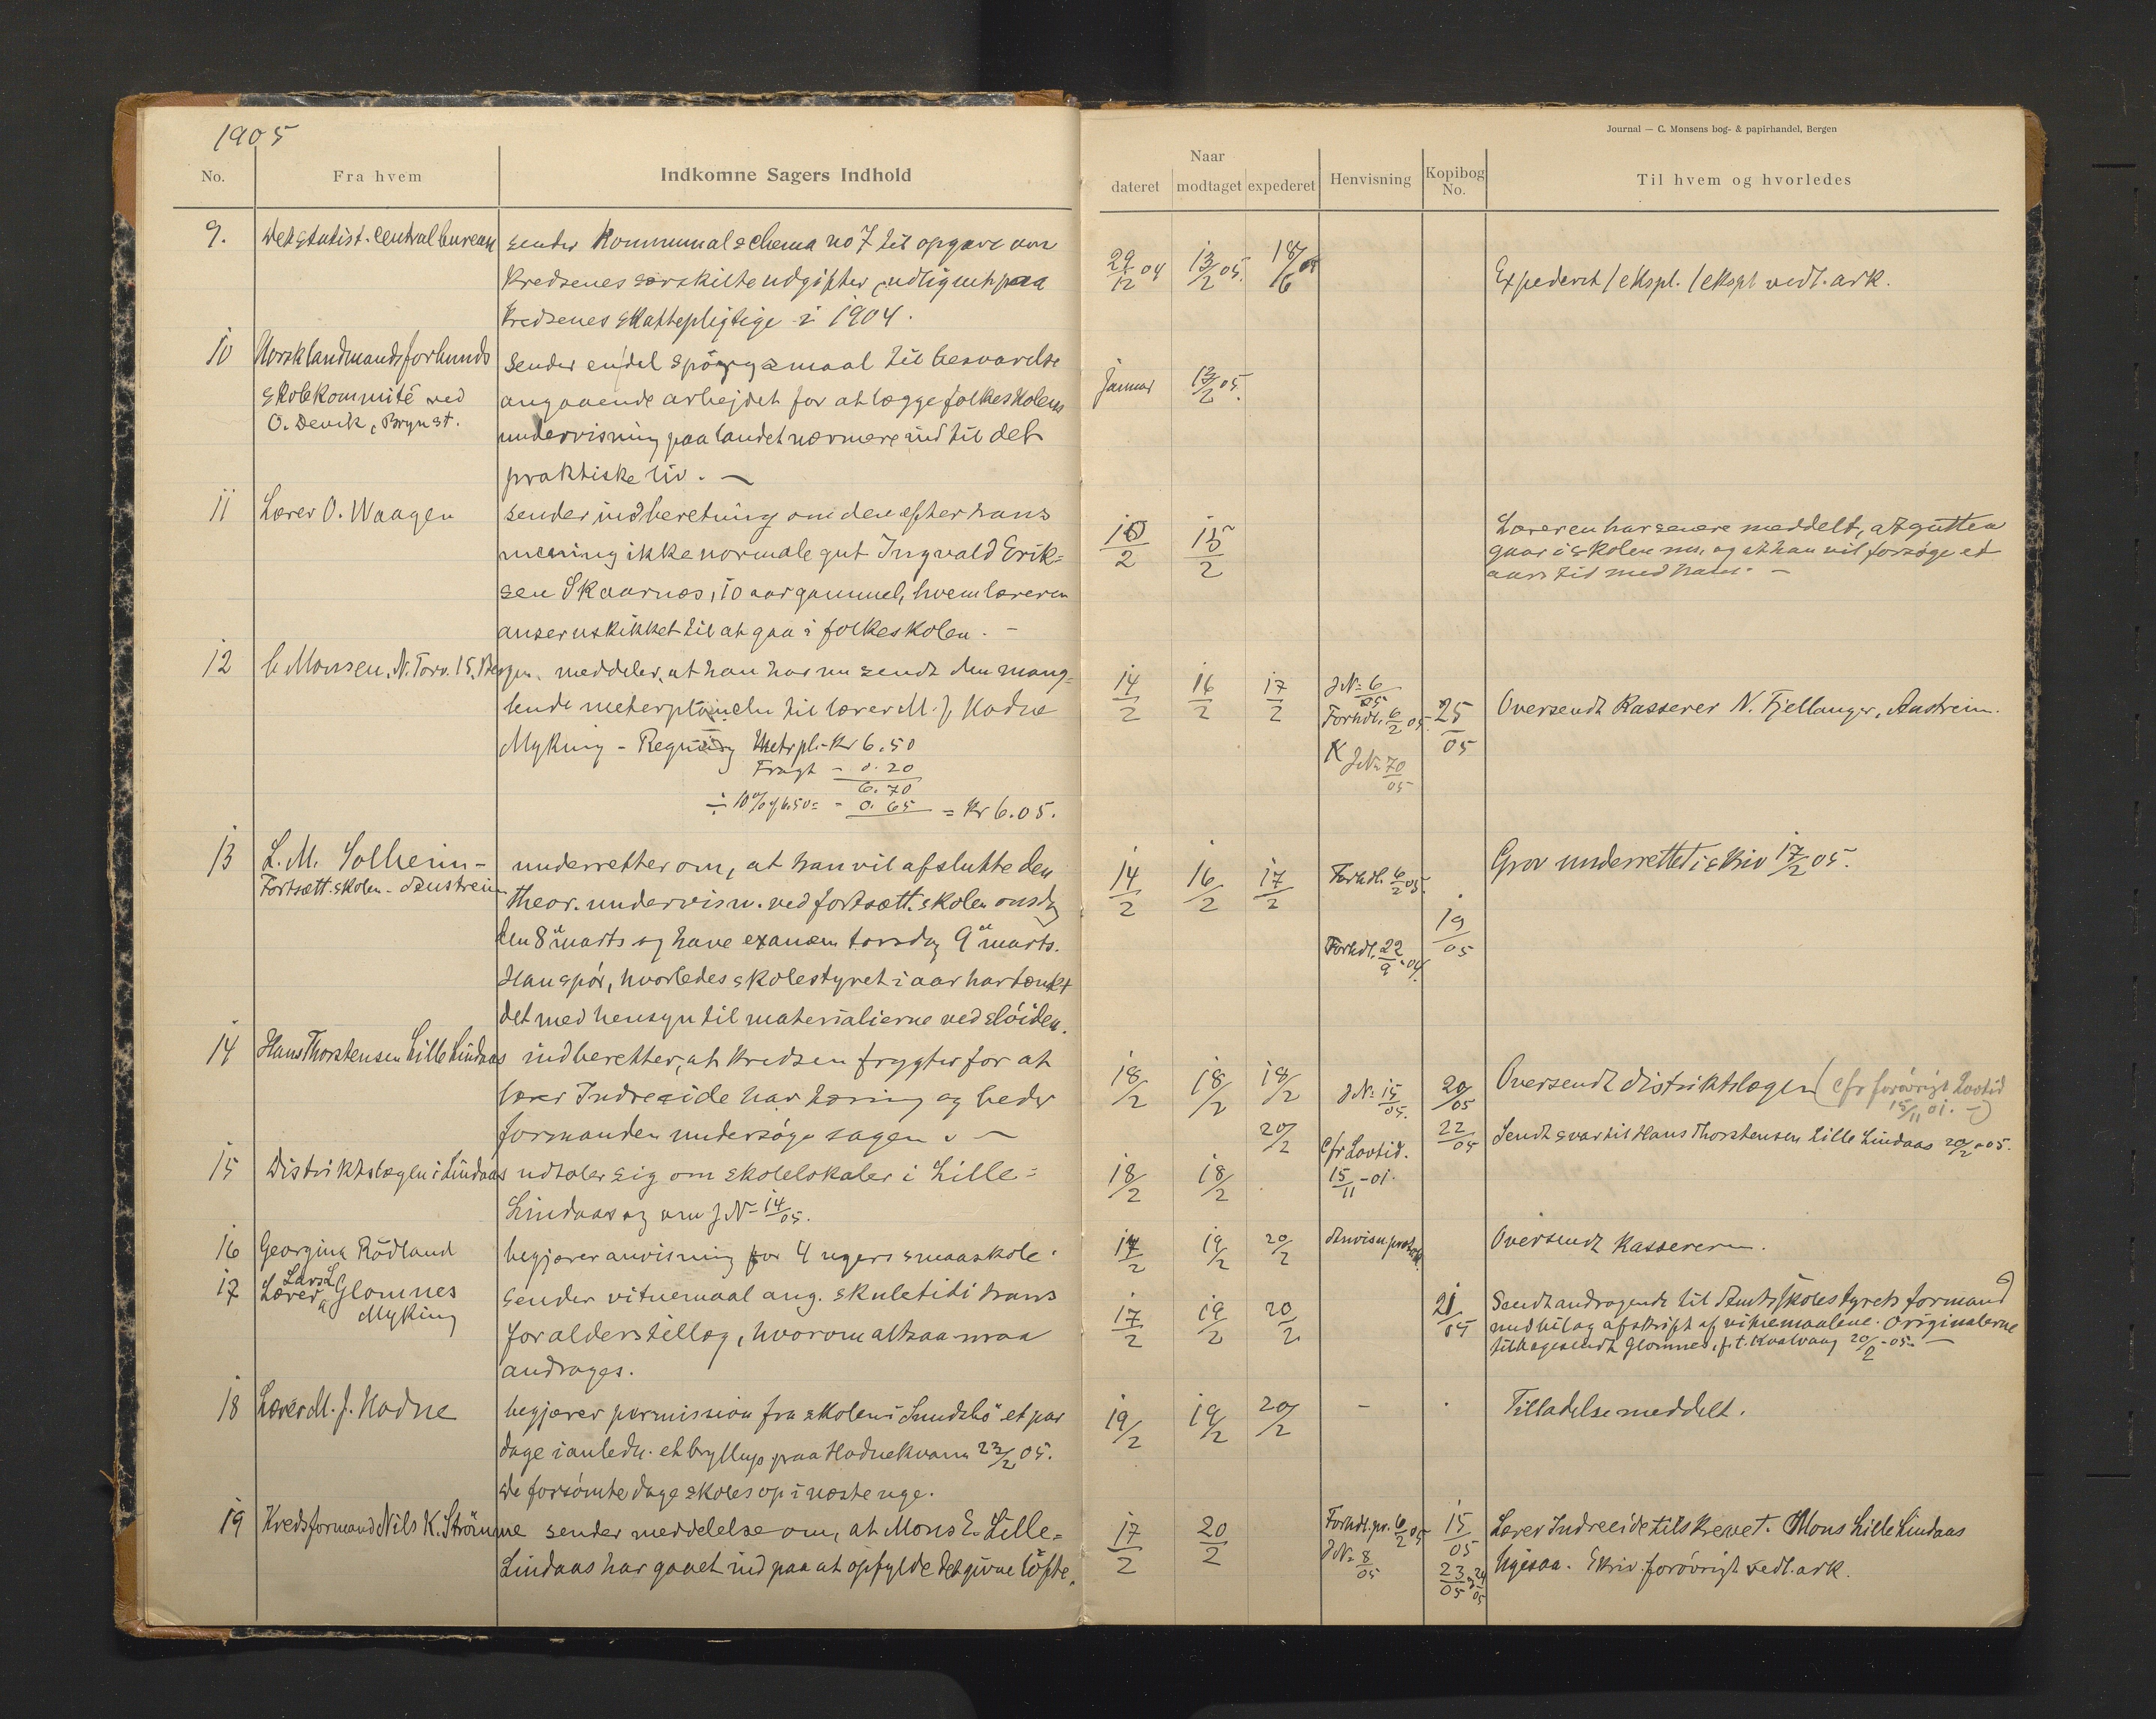 1905
No.
Fra hvem
Indkomne Sagers Indhold
9.
Det statist. centralbureau
sender Kommunalschema no 7 til opgave om
kredsenes særskilte udgifter, udlignet paa
kredsenes skattepligtige i 1904.
10
Norsk landmandsforbunds
skolekommité ved
O. Devik, Bryn st.
sender endel spörgsmaal til besvarelse
angaaende arbejdet for at lægge folkeskolens
undervisning paa landet nærmere ind til det
praktiske liv. —
11
Lærer O. Waagen
sender indberetning om den efter hans
mening ikke normale gut Ingvald Erik=
sen Skaarnes, 10 aar gammel, hvem læreren
anser uskikket til at gaa i folkeskolen. —
12
C Monsen, N. Torv. 15, Bergen.
meddeler, at han har nu sendt den mang=
lende meterplancher til lærer M. J. Hodne
Myking – Regning Metrpl. Kr 6.50
Fragt – 0.20
6.70
÷ 10% af 6.50 = – 0.65 = Kr 6.05.
13
L. M. Solheim –
Fortsætt. skolen – Austrein
underretter om, at han vil afslutte den
theor. undervisn. ved fortsætt. skolen onsdag
den 8de marts og have examen torsdag 9de marts.
Han spör, hvorledes skolestyret i aar har tænkt
det med hensyn til materialierne ved slöiden.
14
Hans Thorstensen Lille Lindaas
indberetter, at kredsen frygter for at
lærer Indreeide har tæring og beder
formanden undersöge sagen. —
15
Distriktslægen i Lindaas
udtaler sig om skolelokaler i Lille=
Lindaas og om J.No 14/05.
16
Georgina Rödland
begjærer anvisning for 4 ugers smaaskole.
17
Lærer Lars L Glomnes
Myking
sender vitnemaal ang. skuletid i hans
for alderstillæg, hvorom altsaa maa
andrages.
18
Lærer M. J. Hodne
begjærer permission fra skolen i Sundsbö et par
dage i anledn. et bryllup paa Hodnekvam 23/2 05.
De forsömte dage skoles op i næste uge.
19
Kredsformand Nils K. Strömme
sender meddelelse om, at Mons E. Lille=
Lindaas har gaaet ind paa at opfylde det givne löfte.
Journal — C. Monsens bog- & papirhandel, Bergen
Naar
dateret
modtaget
expederet
Henvisning
Kopibog
No.
Til hvem og hvorledes
29/12 04
13/2 05.
18/6 05
Expederet 1 ekspl. 1 ekspl vedl. ark.
Januar
13/2 05.
10/2
15/2
Læreren har senere meddelt, at gutten
gaar i skolen nu, og at han vil forsöge et
aars tid med ham. —
14/2
16/2
17/2
J No 6/05
Forhdl. 6/2 05.
K J No 70/05
25/05
Oversendt Kasserer N. Fjellanger, Austrein.
14/2
16/2
17/2
Forhdl. 6/2 05.
Forhdl. 22/9 - 04.
19/05
Grov underrettet i skriv 17/2 05.
18/2
18/2
18/2
J No 15/05.
20/05
Oversendt distriktslægen (cfr forövrigt Lovtid
15/11 01. —)
20/2
cfr Lovtid.
15/11 - 01.
22/05
Sendt svar til Hans Thorstensen Lille Lindaas 20/2 - 05.
18/2
18/2
14/2
19/2
20/2
Oversendt Kassereren.
17/2
19/2
20/2
21/05
Sendt andragende til Amtsskolestyrets formand
med bilag afskrift af vitnemaalene. Originalerne
tilbagesendt Glomnes, p.t. Kvalvaag 20/2 - 05. —
19/2
19/2
20/2
–
Tilladelse meddelt.
17/2
20/2
Forhdl. pr. 6/2 05
J No 8/05
15/05
23/05 og 24/05
Lærer Indreeide tilskrevet. Mons Lille Lindaas
ligesaa. Skriv. forövrigt vedl. ark.